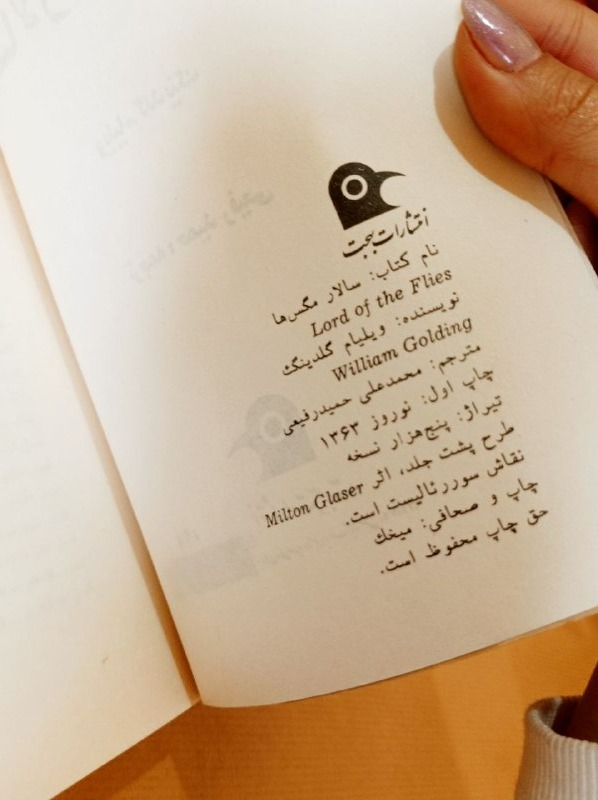 انتشارات بهجت
نام کتاب: سالار مگس‌ها
Lord of the Flies
نویسنده: ویلیام گلدینگ
William Golding
مترجم: محمدعلی حمیدرفیعی
چاپ اول: نوروز ۱۳۶۳
تیراژ: پنج‌هزار نسخه
طرح پشت جلد، اثر Milton Glaser
نقاش سوررئالیست است.
چاپ و صحافی: میخک
حق چاپ محفوظ است.